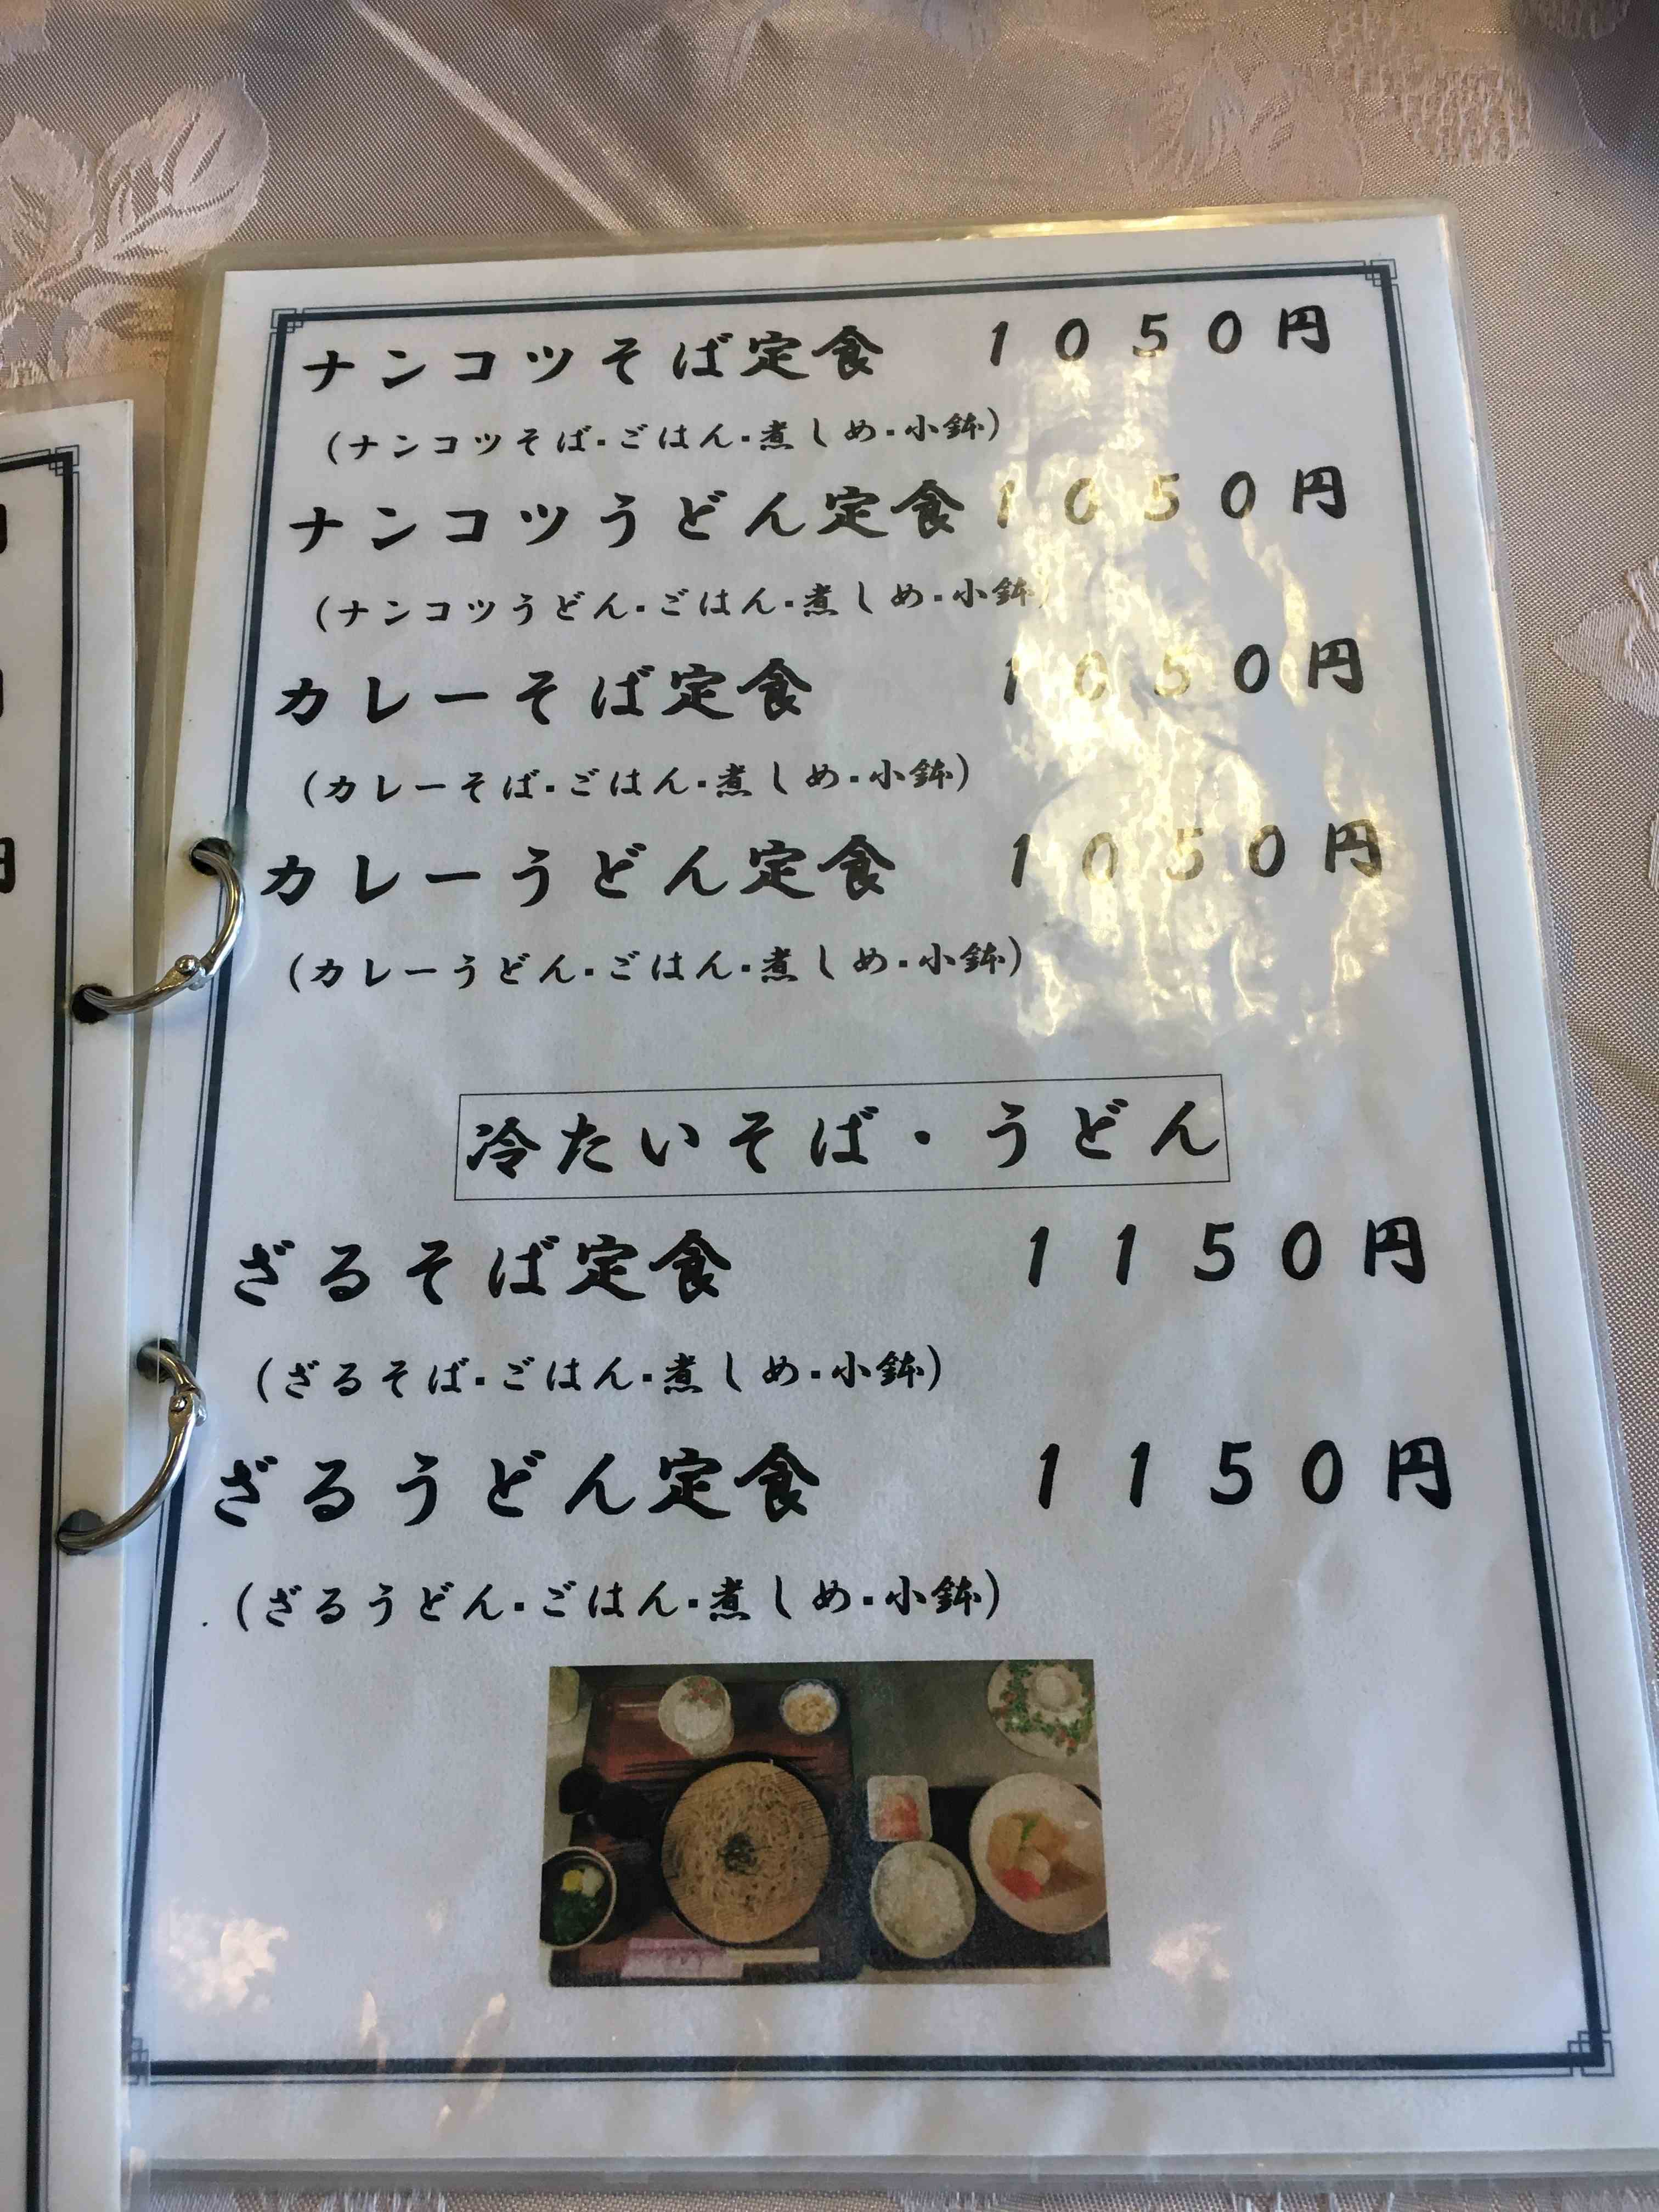 ナンコツそば定食 1050円
(ナンコツそば・ごはん・煮しめ・小鉢)
ナンコツうどん定食 1050円
(ナンコツうどん・ごはん・煮しめ・小鉢)
カレーそば定食 1050円
(カレーそば・ごはん・煮しめ・小鉢)
カレーうどん定食 1050円
(カレーうどん・ごはん・煮しめ・小鉢)
冷たいそば・うどん
ざるそば定食 1150円
(ざるそば・ごはん・煮しめ・小鉢)
ざるうどん定食 1150円
(ざるうどん・ごはん・煮しめ・小鉢)